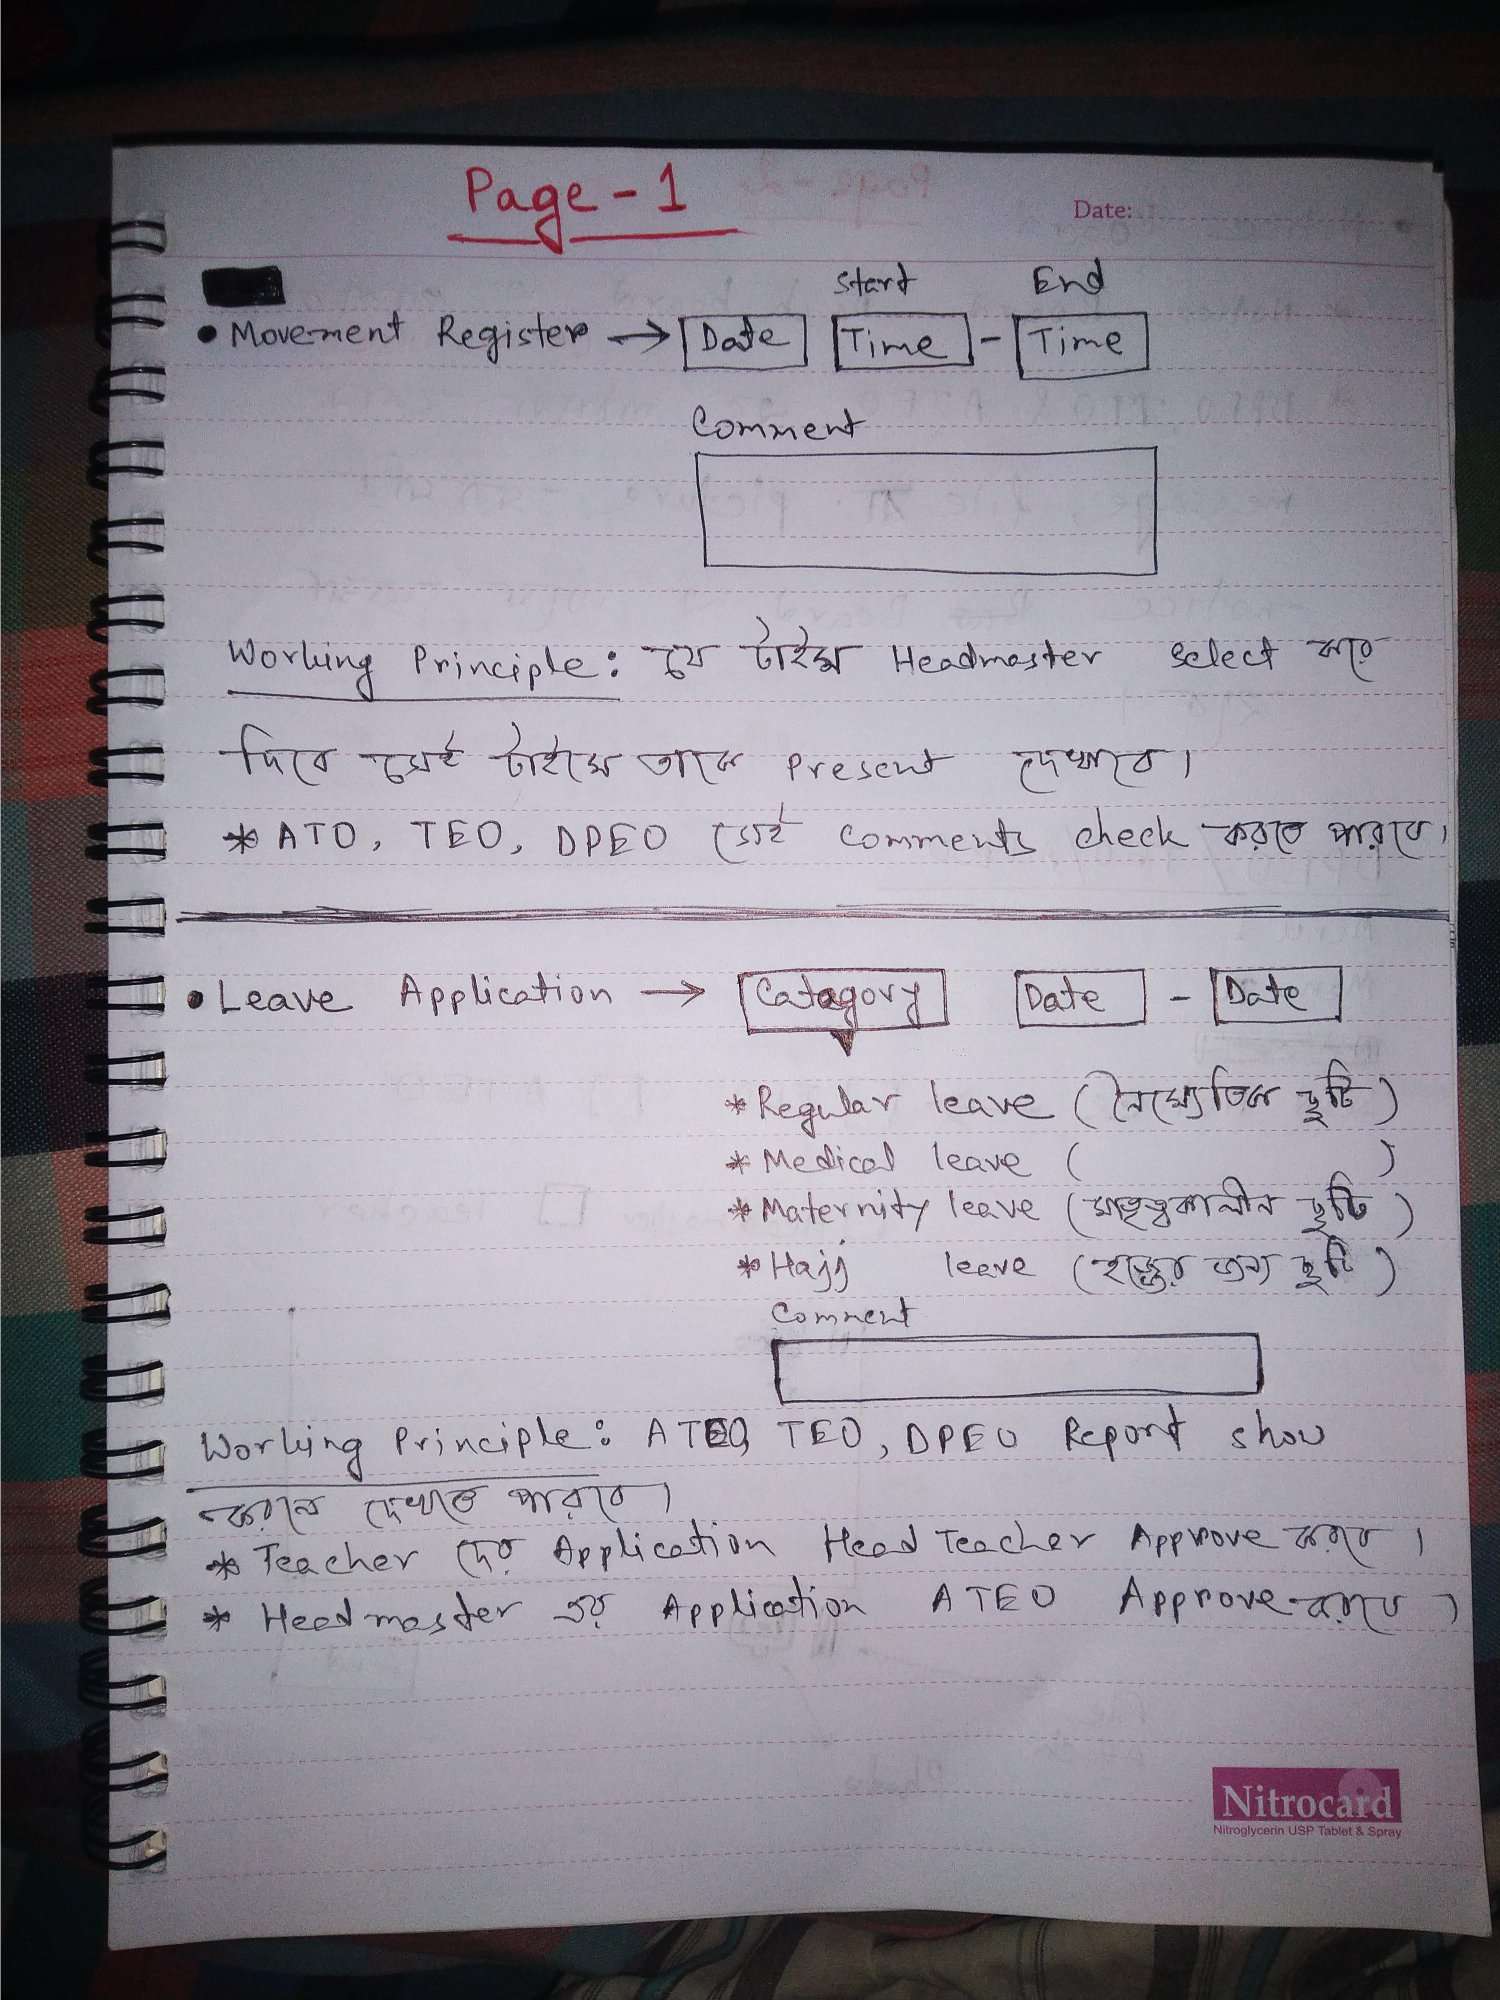 Page-1
Date:
Start End
• Movement Register → Date Time - Time
Comment
Working Principle: যে টাইম Headmaster select করে
দিবে সেই টাইমে তাকে Present দেখাবে।
* ATO, TEO, DPEO সেই comments check করতে পারবে।
• Leave Application → Catagory Date - Date
* Regular leave (নৈমেত্তিক ছুটি)
* Medical leave ( )
* Maternity leave (মাতৃত্বকালীন ছুটি)
* Hajj leave (হজ্জের জন্য ছুটি)
Comment
Working Principle: ATEO, TEO, DPEO Report show
করলে দেখতে পারবে।
* Teacher দের Application Head Teacher Approve করবে।
* Headmaster এর Application ATEO Approve করবে।
Nitrocard
Nitroglycerin USP Tablet & Spray